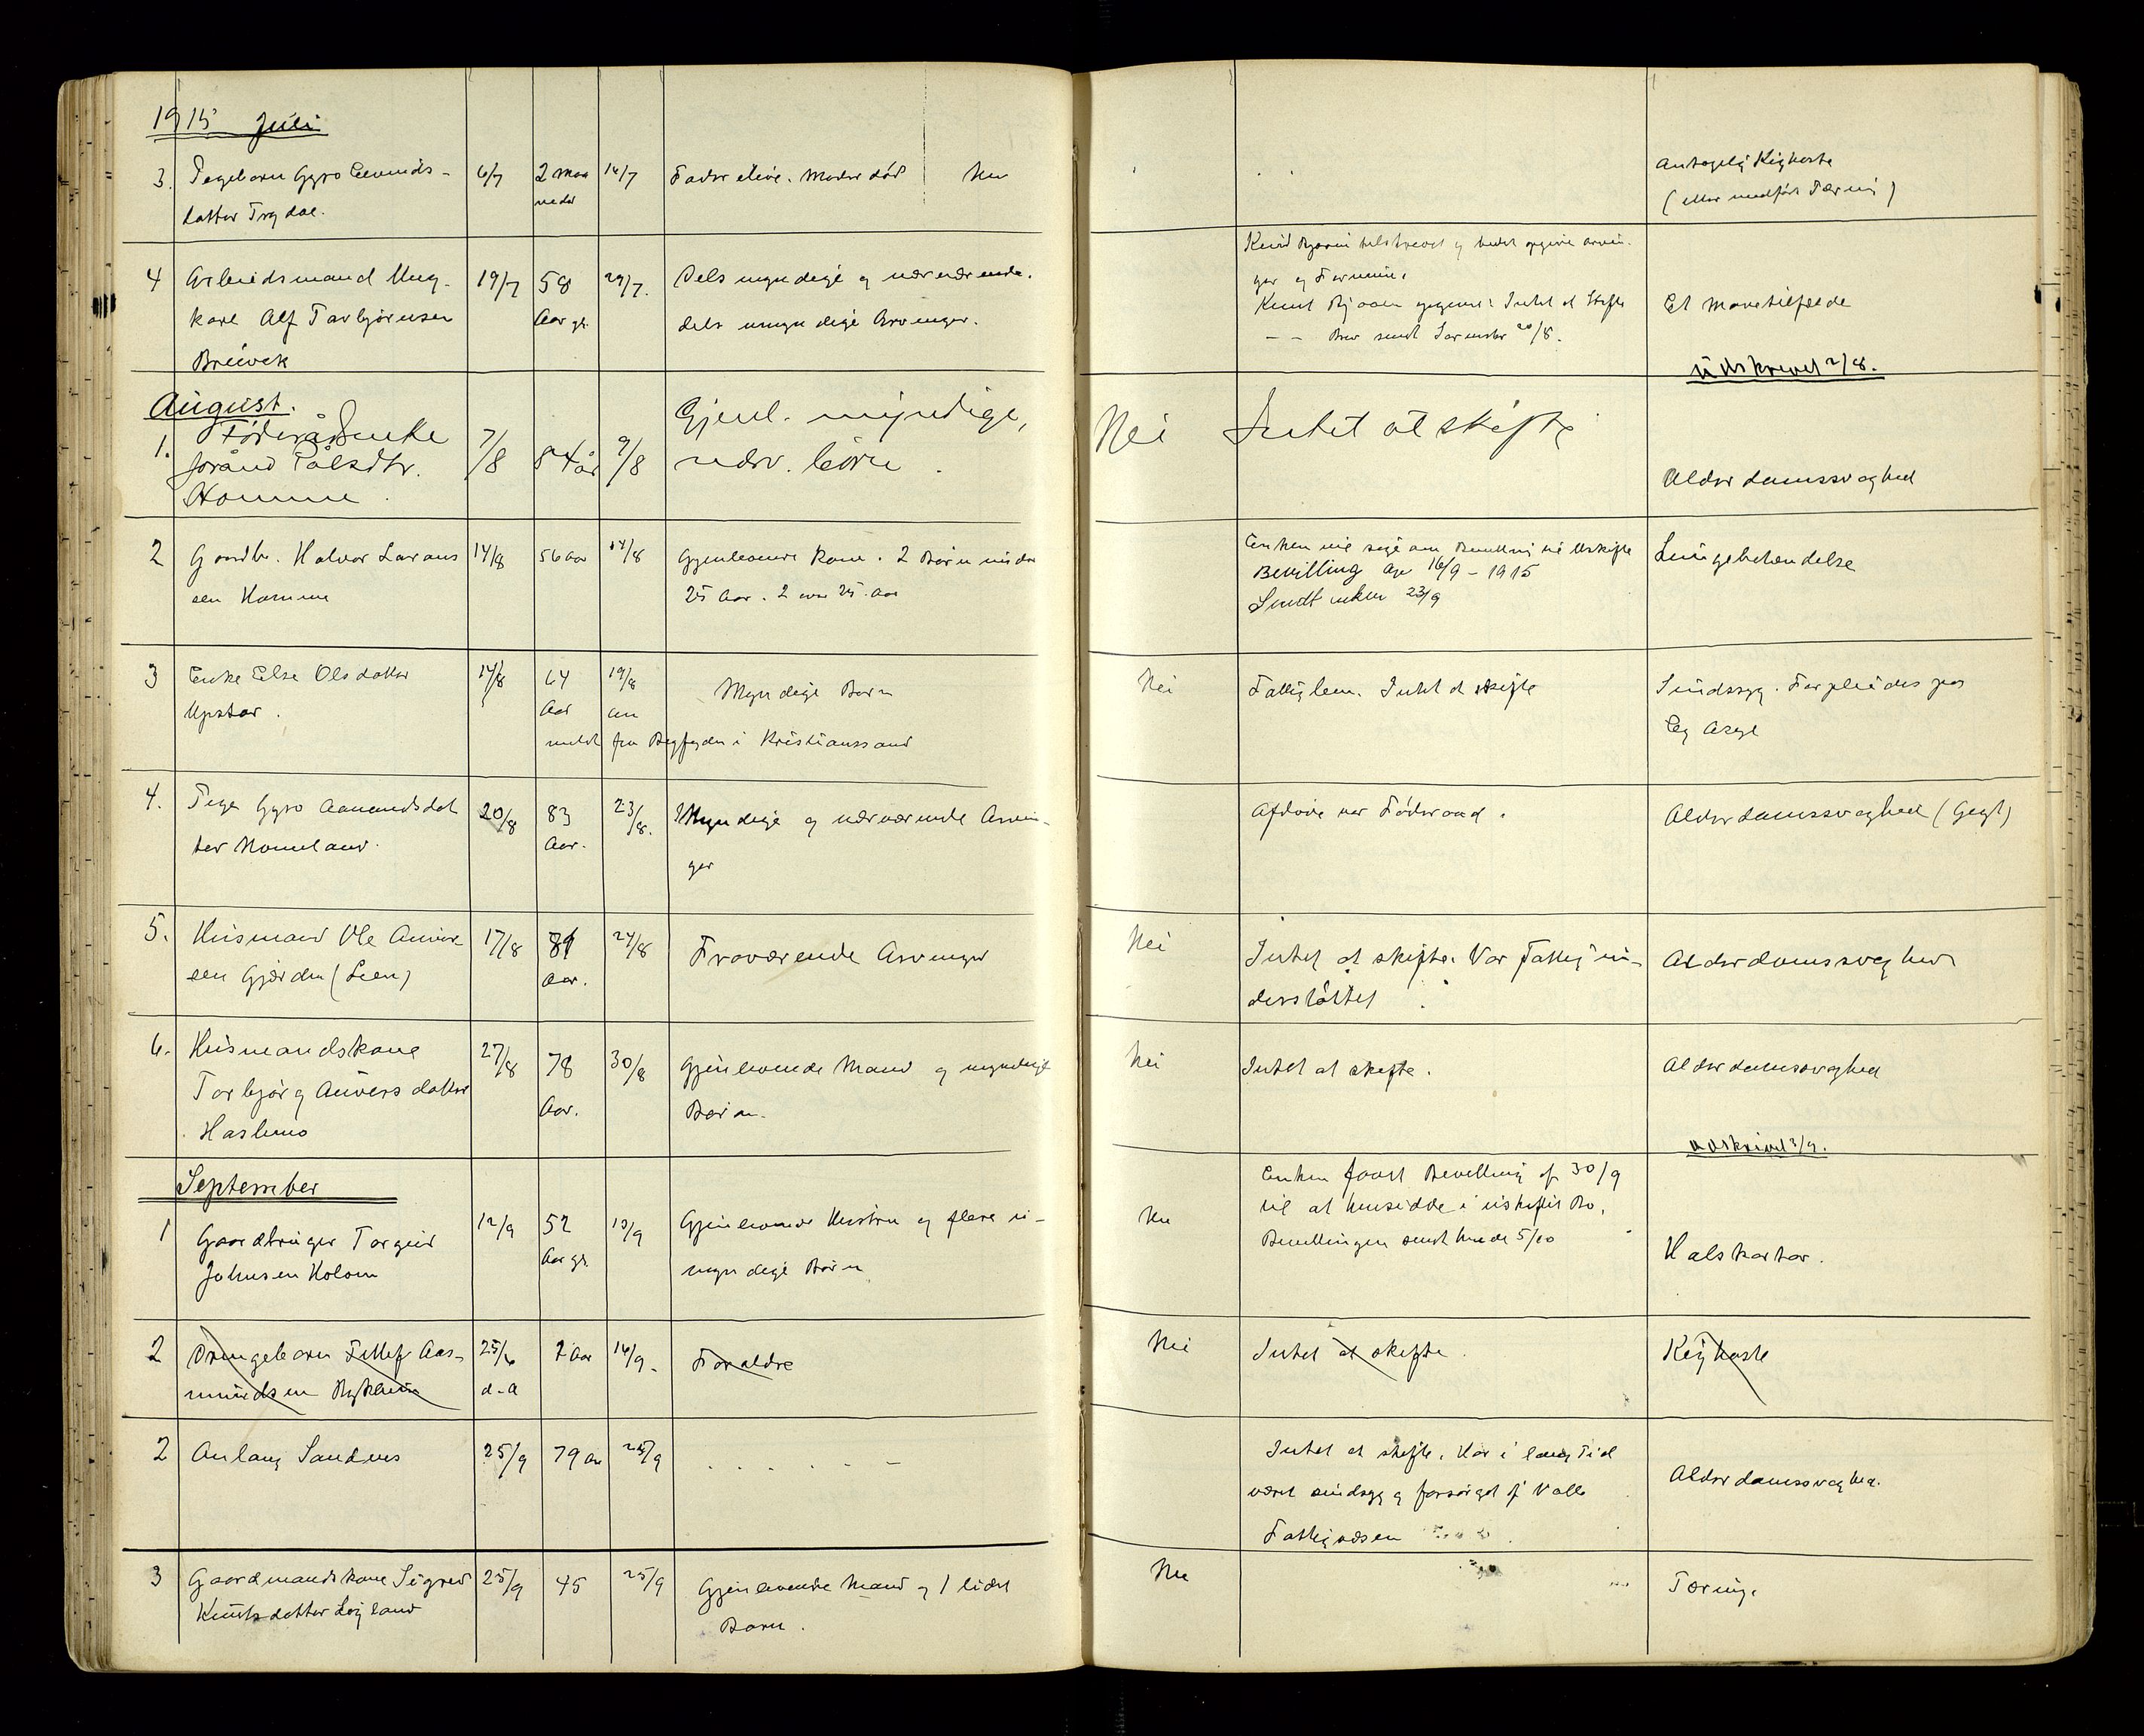 1915 Juli
3. Pigebarn Gyro Eivinds-
datter Trydal.
6/7
2 Maa
neder
14/7
Fader ilive. Moder död
Nei
Antagelig Kighoste
(eller medfödt Tæring)
4 Arbeidsmand Ung-
karl Alf Torbjörnsen
Breivik
19/7
58
Aar gl.
29/7.
Dels myndige og nærværende.
dels umyndige Arvinger.
og Formue.
Knut Intet at skifte
- - Brev sendt 20/8.
Et Mavetilfælde
Udskrevet 2/8.
August.
1. Föderådsenke
Jorånd Pålsdtr.
Homme.
7/8
84 år
9/8
Gjenl. myndige,
nærv. börn.
Nei
Intet at skifte
Alderdomssvaghed
2 Gaardbr. Halvor Lavrans
sen Homme
14/8
56 Aar
17/8
Gjenlevende Kone. 2 Börn under
25 Aar. 2 over 25 Aar
Enken vil söge om Bevilling til Uskifte
Bevilling av 16/9 - 1915
Sendt enken 23/9
Lungebetændelse
3 Enke Else Olsdatter
Upstar.
14/8
64
Aar
19/8
an
meldt fra Byfogden i Kristianssand
Myndige Börn
Nei
Fattiglem. Intet at skifte
Sindssyg. Forpleiedes paa
Eg Asyl
4. Pige Gyro Aanundsdat
ter Homeland.
20/8
83
Aar.
23/8.
Myndige og nærværende Arvin-
ger
Afdöde var Föderaad.
Alderdomssvaghed (Gigt)
5. Husmand Ole Anver-
sen Gjærden (Lien)
17/8
81
Aar.
24/8
Fraværende Arvinger
Nei
Intet at skifte. Var Fattig un-
derstöttet
Alderdomssvaghed
6. Husmandskone
Torbjörg Anversdatter
Haslemo
27/8
78
Aar.
30/8
Gjenlevende Mand og myndige
Börn.
Nei
Intet at skifte.
Alderdomssvaghed
Udskrivet 3/9.
September
1 Gaardbruger Torgeir
Johnsen Holom
12/9
52
Aar gl.
13/9
Gjenlevende Hustru og flere u-
myndige Börn
Nei
Enken faaet Bevilling af 30/9
til at hensidde i uskiftet Bo.
Bevillingen sendt hende 5/10
Halskatar.
2 Drengebarn Aas-
mundsen Rykhus
25/6
d.A
2 Aar
16/9.
Forældre
Nei
Intet at skifte.
Kighoste
2 Anlaug Sandnes
25/9
79 Aar
25/9
. . . . - -
Intet at skifte. Har i lang Tid
været sindsyg og forsörget af Valle
Fattigvæsen
Alderdomssvaghed.
3 Gaardmandskone Sigrid
Knutsdatter Løgland
25/9
45
25/9
Gjenlevende Mand og 1 lidet
Barn.
Nei
Tæring.